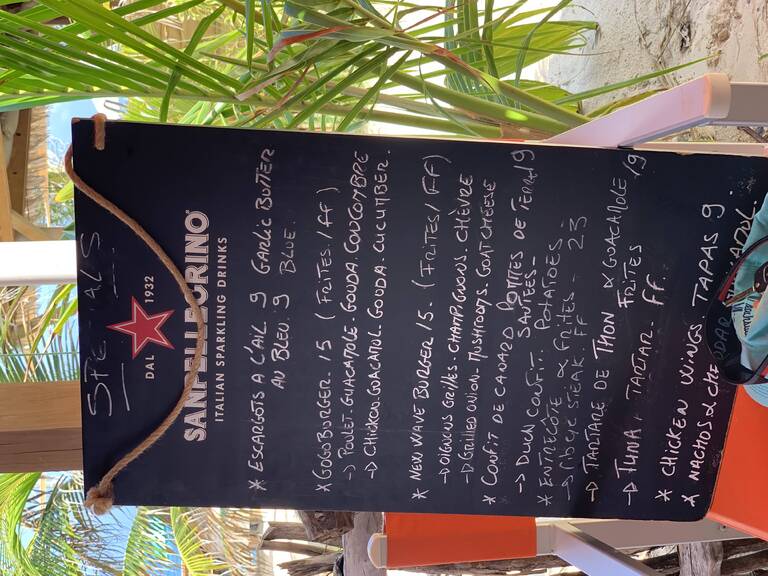 SPECIALS
DAL 1932
SANPELLEGRINO®
ITALIAN SPARKLING DRINKS
* ESCARGOTS A L'AIL 9 GARLIC BUTTER
AU BLEU. 9 BLUE.
* GOGOBURGER. 15 (FRITES./FF)
-> POULET. GUACAMOLE GOUDA. CONCOMBRE
-> CHICKEN. GUACAMOL. GOUDA. CUCUMBER.
* NEW WAVE BURGER 15. (FRITES/FF)
-> OIGNONS GRILLÉS. CHAMPIGNONS. CHÈVRE
-> GRILLED ONION. MUSHROOMS. GOAT CHEESE
* CONFIT DE CANARD POMMES DE TERRE 19
SAUTEES-
-> DUCK CONFIT. POTATOES
* ENTRECÔTE & FRITES - 23
-> RIBEYE STEAK FF
-> TARTARE DE THON & GUACAMOLE 19
FRITES
-> TUNA TARTAR. FF.
* CHICKEN WINGS TAPAS 9.
* NACHOS &